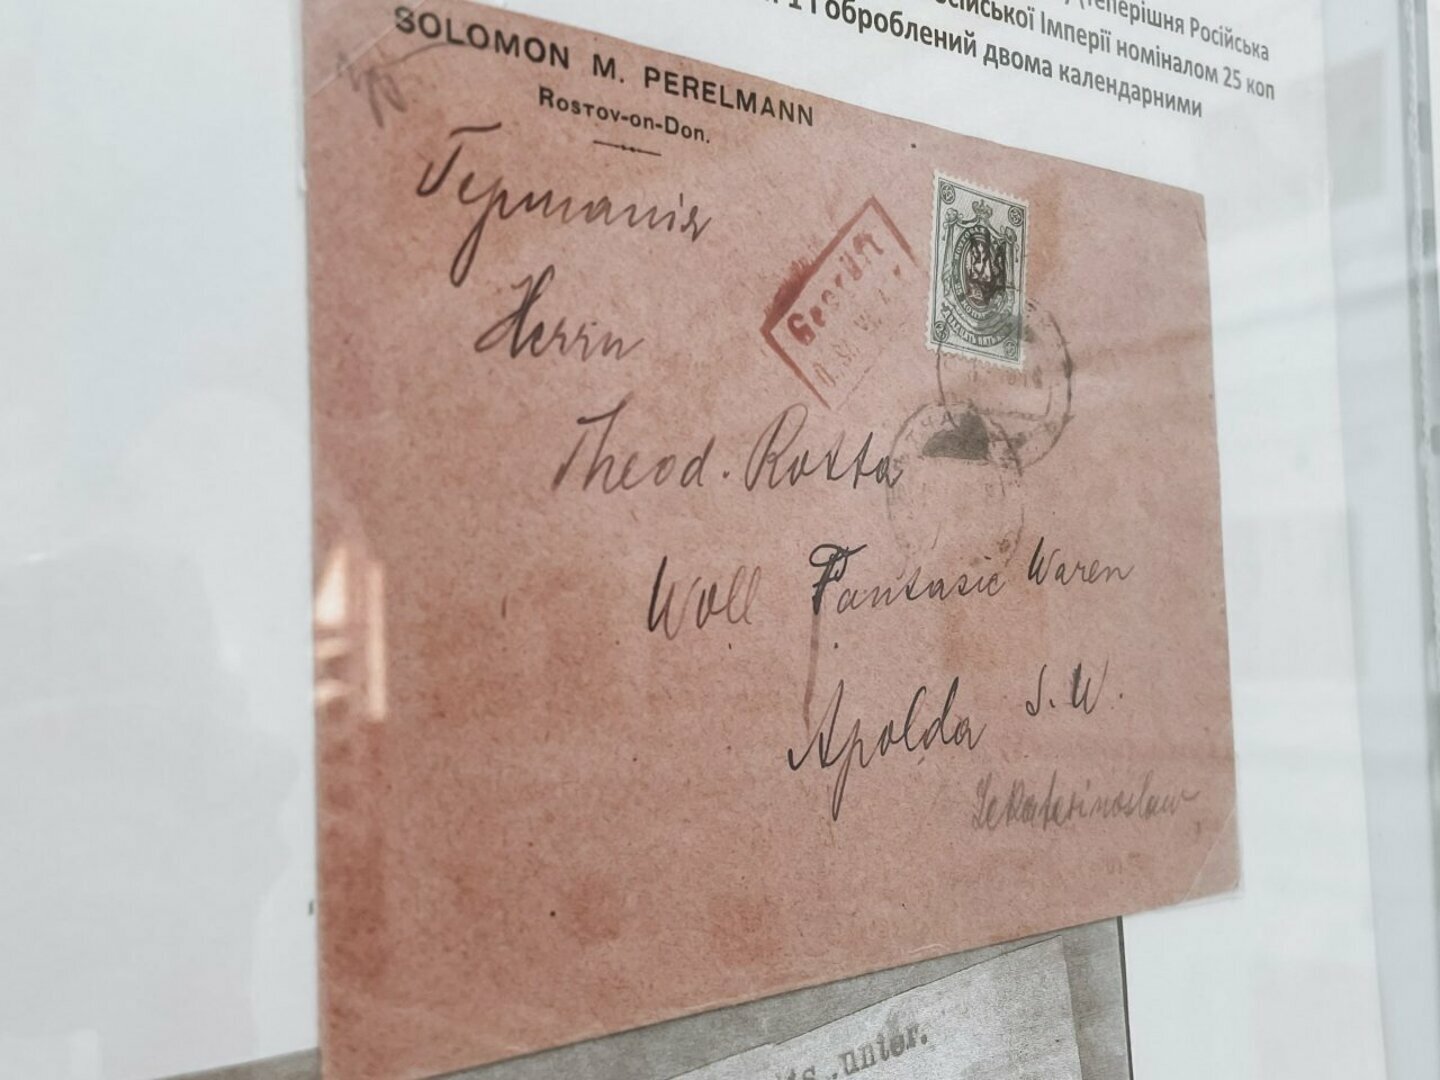 (теперішня Російська
Імперії номіналом 25 коп
оброблений двома календарними
SOLOMON M. PERELMANN
Rostov-on-Don.
Германія
Herrn
Theod. Rotta
Woll Fantasie Waren
Apolda S. W.
Jekaterinoslaw
Geprüft
ПОЧТОВАЯ
ДВАДЦАТЬ ПЯТЬ
unter.